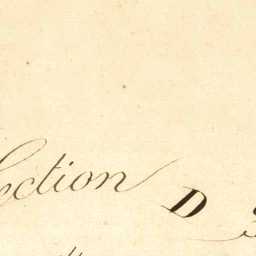 Section D